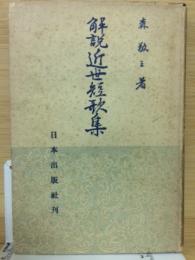 森敬三著
解説近世短歌集
日本出版社刊